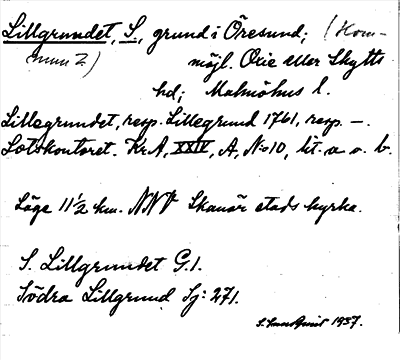 Lillgrundet, S., grund i Öresund; (Kom-
mun?) möjl. Oxie eller Skytts
hd; Malmöhus l.
Lillegrundet, resp. Lillegrund 1761, resp. —.
Lotskontoret. Kr.A, XXIV, A, N:o 10, lit. a o. b.
Läge 11 1/2 km. NNV Skanör stads kyrka.
S. Lillgrundet G.1.
Södra Lillgrund Sj: 271.
1937.